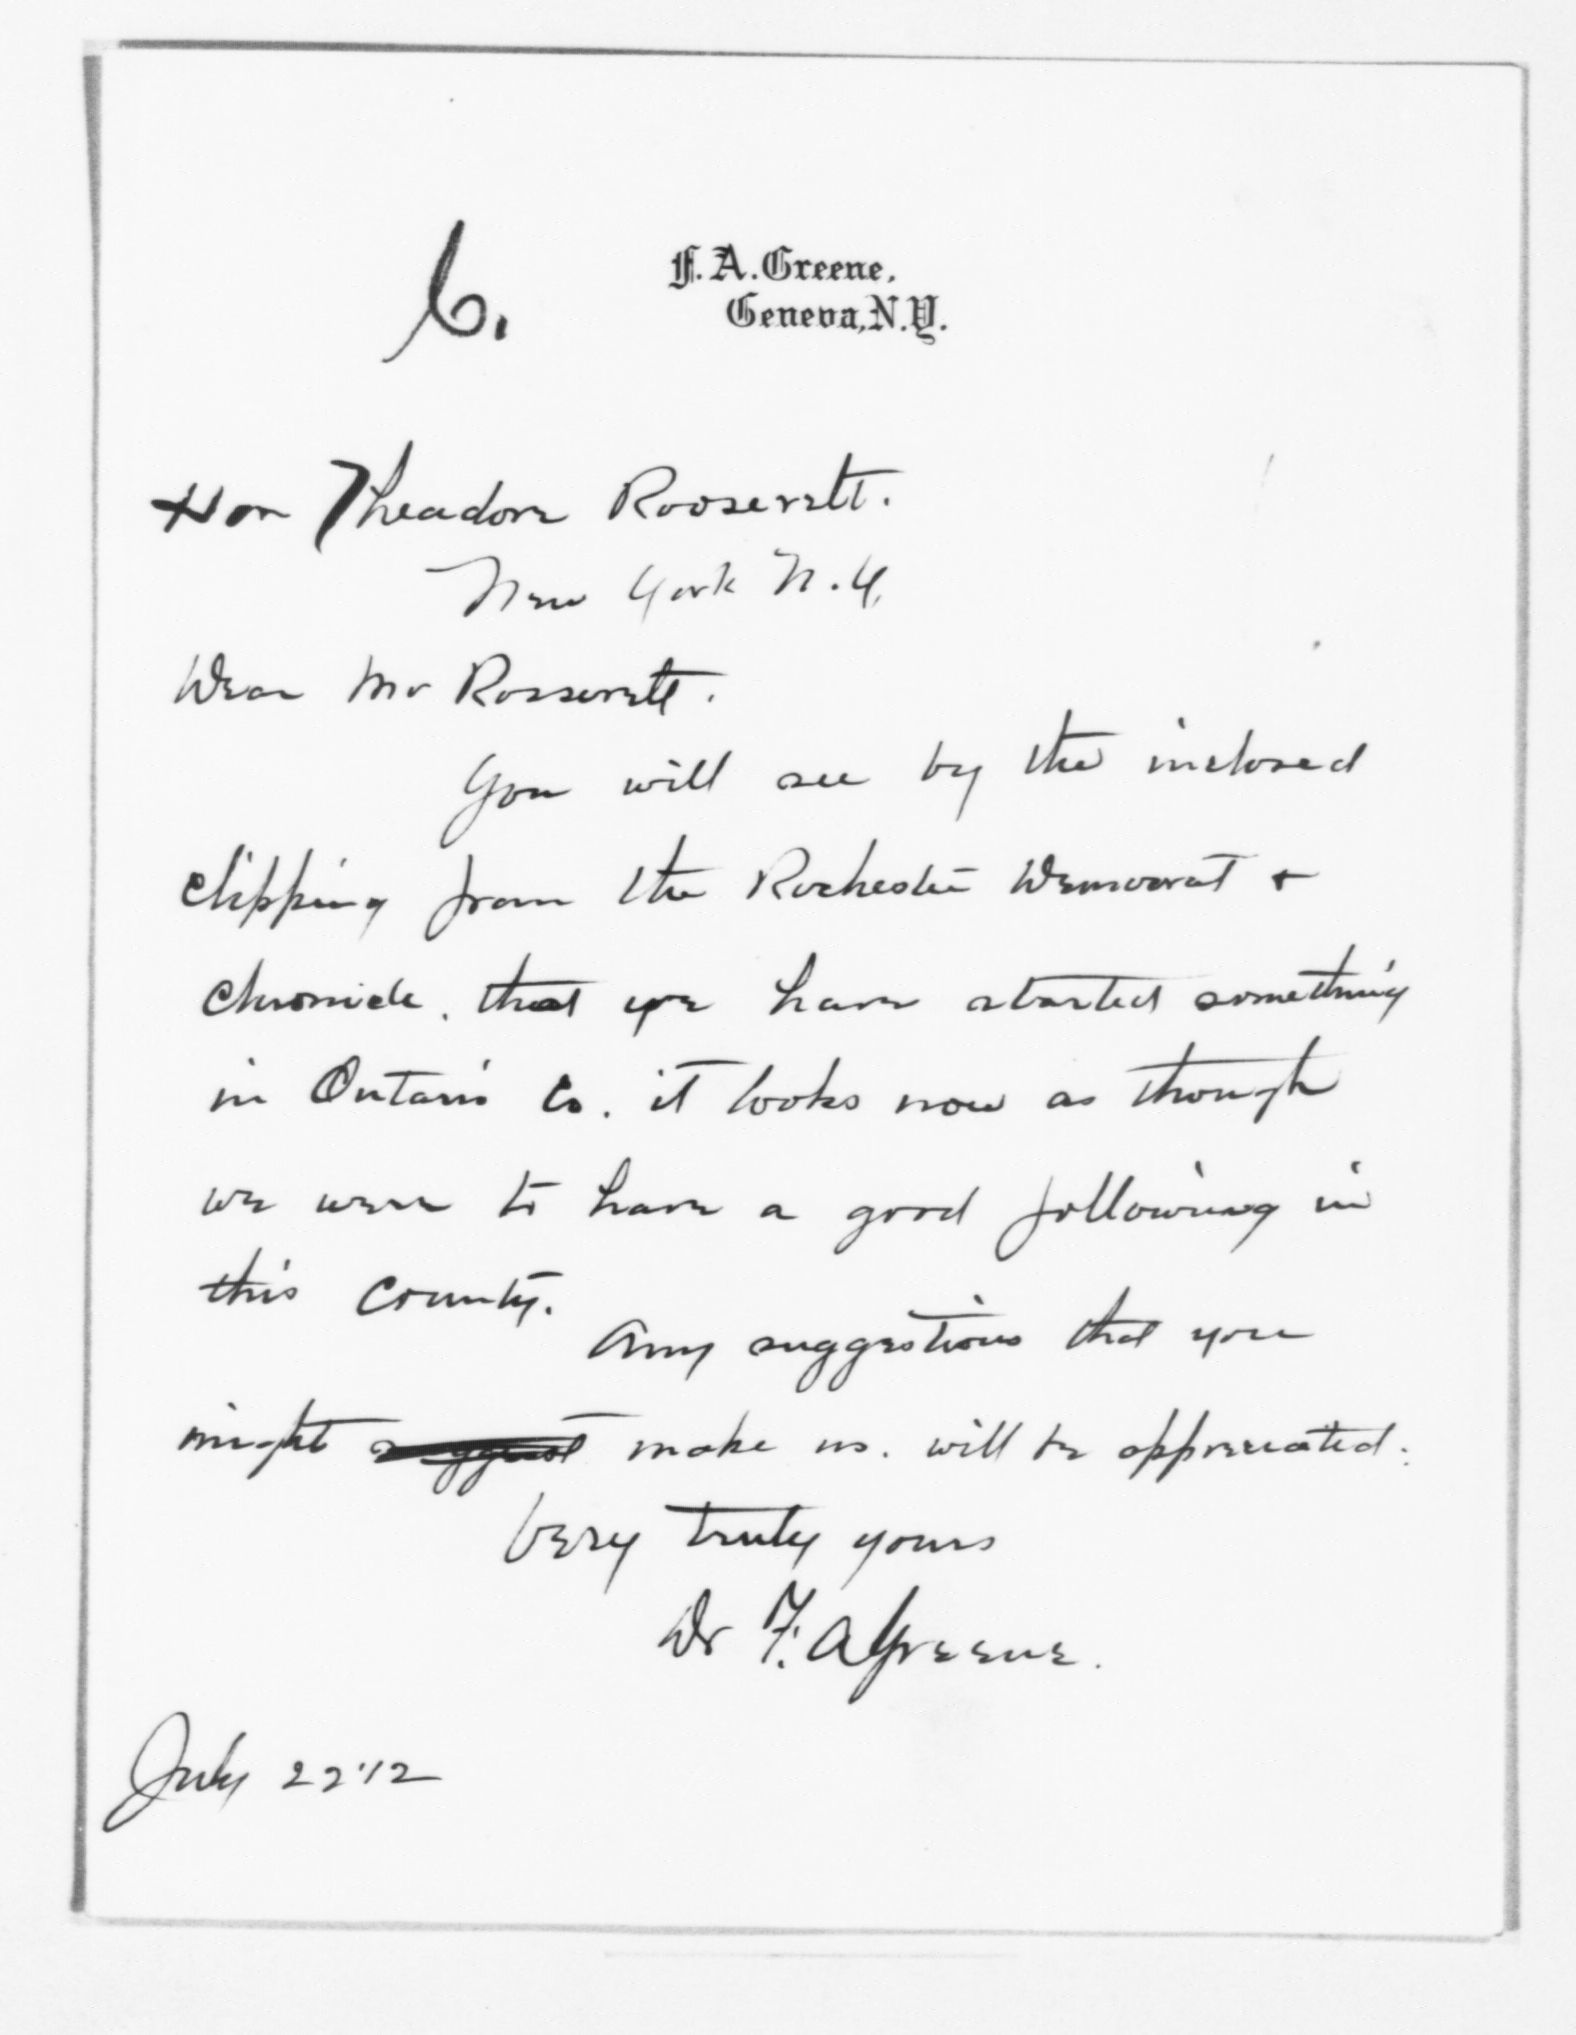 C.
F. A. Greene,
Geneva, N.Y.
Hon Theadore Roosevelt.
New York N.Y.
Dear Mr Roosevelt.
You will see by the inclosed
clipping from the Rochester Democrat +
Chronicle, that we have started something
in Ontario Co. it looks now as though
we were to have a good following in
this County.
Any suggestions that you
might suggest make us. will be appreciated.
Very truly yours
Dr F. A Greene.
July 22'12